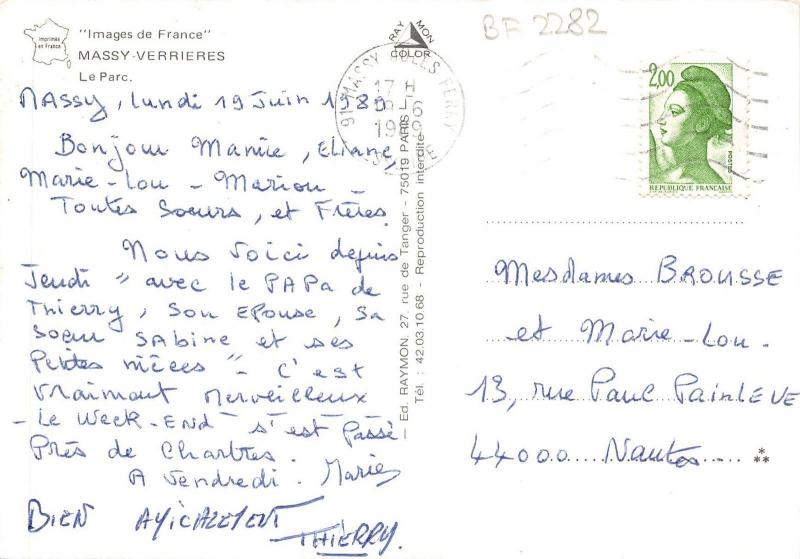 Imprimée
en France
"Images de France"
MASSY-VERRIERES
Le Parc.
RAYMON
COLOR
BF 2282
MASSY, lundi 19 Juin 1989
Bonjour Mamie, Eliane,
Marie-Lou - Marion -
Toutes Soeurs, et Frères.
Nous voici depuis
Jeudi " avec le PAPA de
Thierry, son Epouse, sa
soeur SABINE et ses
Petites nièces " - C'est
vraimant merveilleux
- Le Week-End s'est Passé
Près de Chartres.
A Vendredi. Marie
BIEN AMICALEMENT
THIERRY.
— Ed. RAYMON, 27, rue de Tanger - 75019 PARIS —
Tél. : 42.03.10.68 - Reproduction interdite
91 MASSY JULES FERRY
17 H
1989
ESSONNE
2,00
POSTES
REPUBLIQUE FRANÇAISE
Mesdames BROUSSE
et Marie-Lou.
13, rue Paul PainLEVE
44000 Nantes